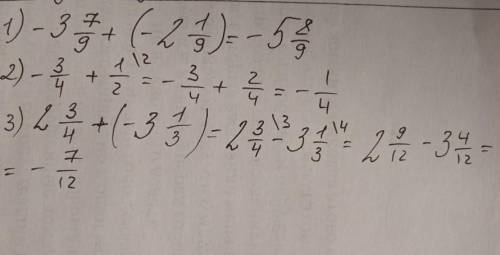 1) -3 7/9 + (-2 1/9) = -5 8/9
2) -3/4 + 1/2 \2 = -3/4 + 2/4 = -1/4
3) 2 3/4 + (-3 1/3) = 2 3/4 \3 - 3 1/3 \4 = 2 9/12 - 3 4/12 =
= - 7/12